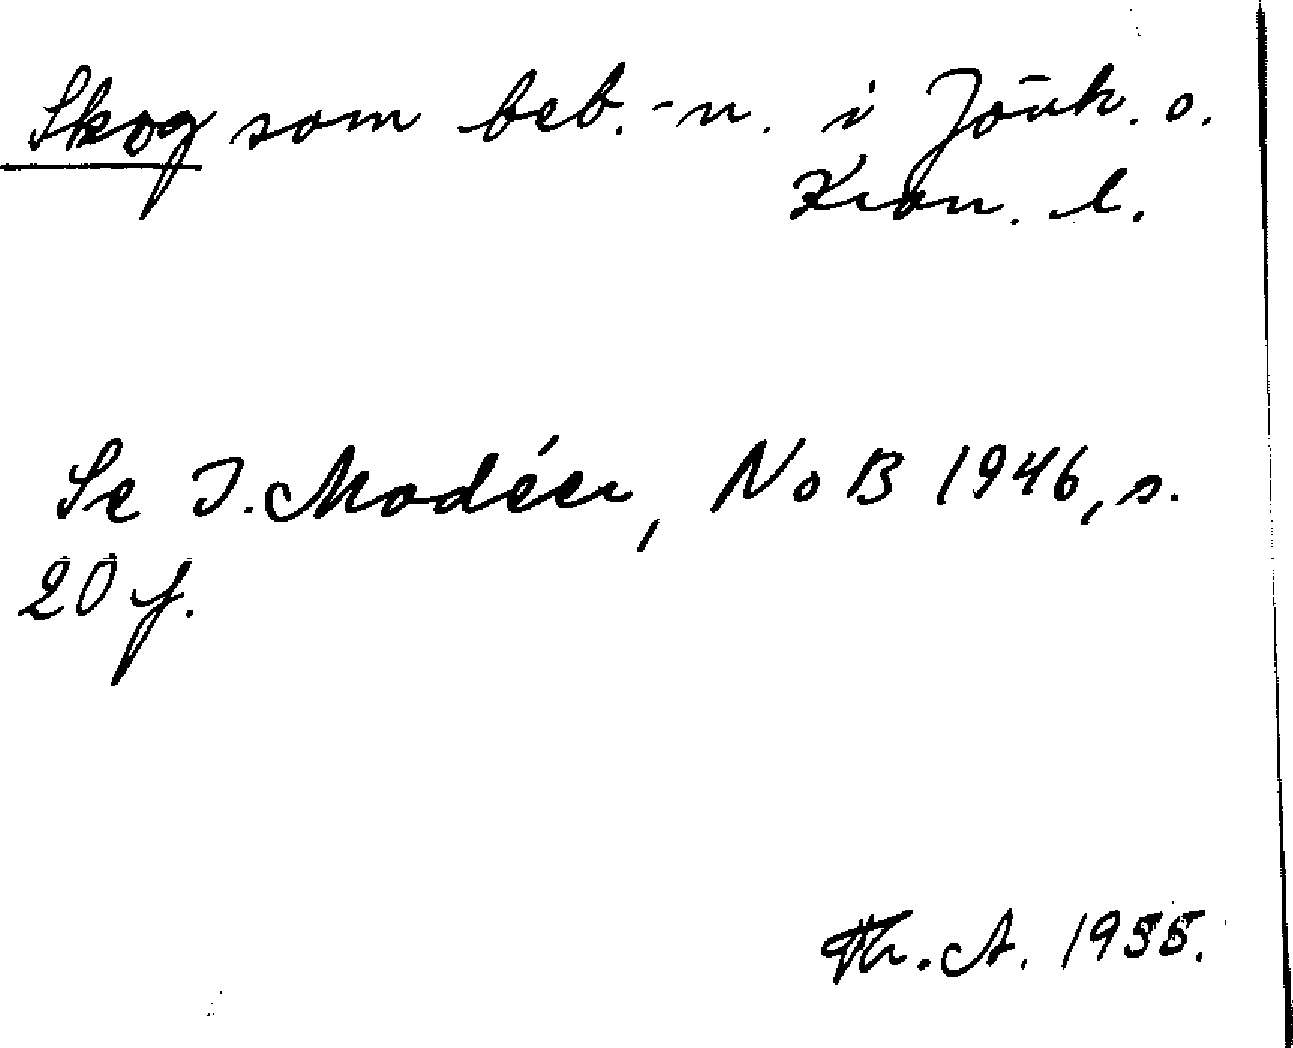 Skog som beb.-n. i Jönk. o.
Kron. l.
Se I. Modéer, NoB 1946, s.
20 f.
Th. A. 1955.